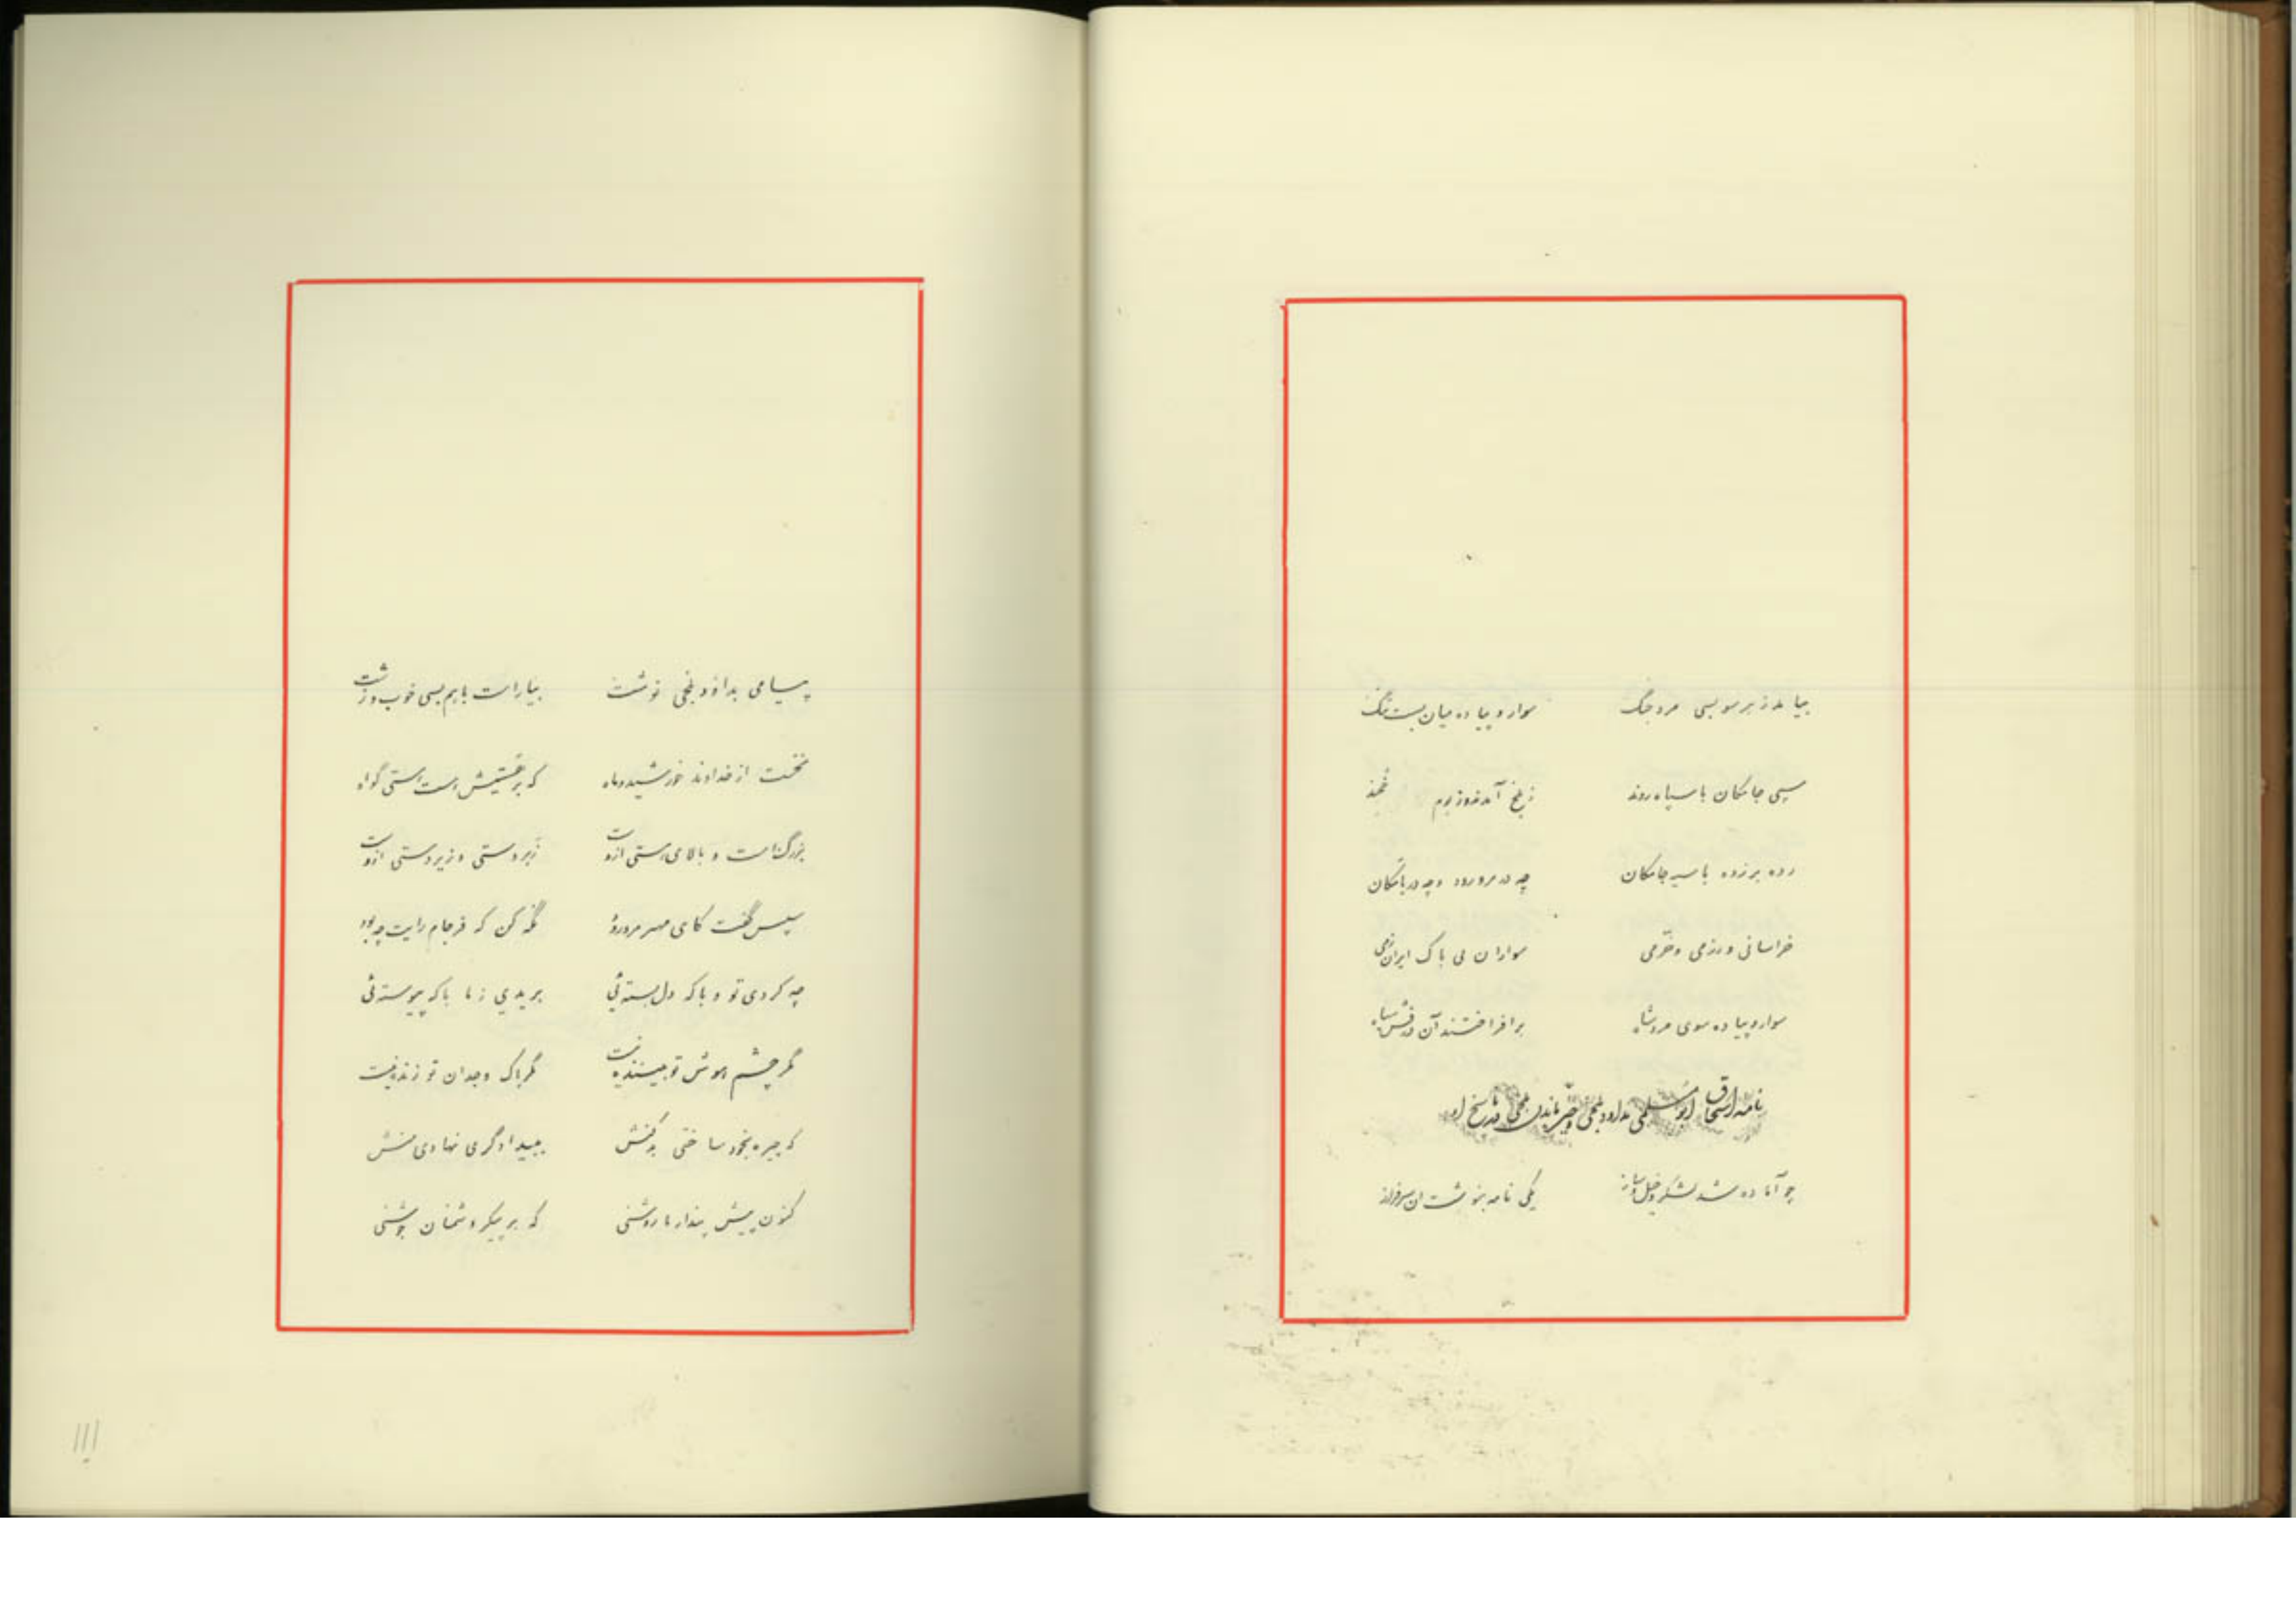 بیامد ز هر سو بسی مرد جنگ سوار و پیاده میان بسته تنگ
سیه جامگان با سپاه روند ز بلخ آمدند و ز بوم خجند
رده بر زده با سیه جامگان چه در مرورود و چه در بامکان
خراسانی و رزمی و خرمی سواران بی باک ایران زمی
سوار و پیاده سوی مرو شاه برافراختند آن درفش سیاه
نامه اسحاق ابومسلمی بداود بلخی و پاسخ او
چو آماده شد لشکر و خیل و ساز یکی نامه بنوشت ان سرفراز
پیامی بداود بلخی نوشت بیاراست باهم بسی خوب و زشت
نخست از خداوند خورشید و ماه که بر هستیش هست هستی گواه
بزرگ است و بالای هستی ازوست زبردستی و زیردستی ازوست
سپس گفت کای مهتر مرورود نگه کن که فرجام رایت چه بود
چه کردی تو و با که دل بسته ئی بریدی ز ما با که پیوسته ئی
مگر چشم هوش تو بیننده نیست مگر پاک وجدان تو زنده نیست
که چیره بخود ساختی بد کنش ببیدادگری نهادی منش
کنون پیش پندار ما روشنی که بر پیکر دشمنان جوشنی
۱۱۱